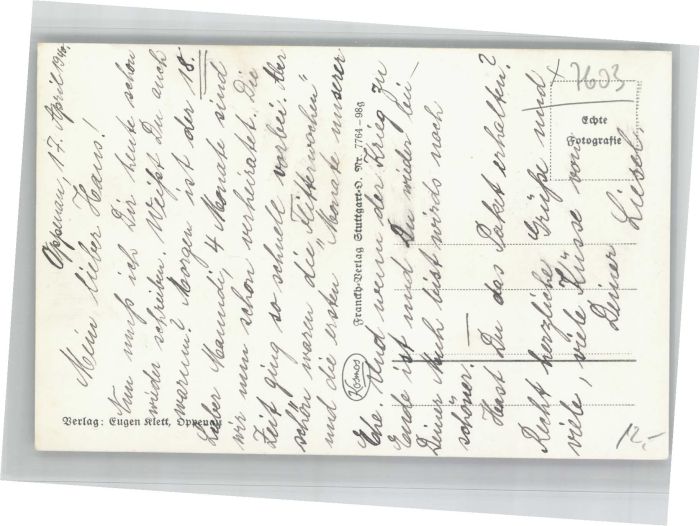 Oppenau, 17. April 1940.
Mein lieber Hans!
Nun muß ich Dir heute schon
wieder schreiben. Weißt Du auch
warum? Morgen ist der 18.
Lieber Manndi, 4 Monate sind
wir nun schon verheiratet. Die
Zeit ging so schnell vorbei. Aber
schön waren die „Flitterwochen"
und die ersten „Monate unserer
Ehe. Und wenn der Krieg zu
Ende ist und Du wieder bei
Deiner bist wird's noch
schöner. —
Hast Du das Paket erhalten?
Recht herzliche Grüße und
viele, viele Küsse von
Deiner Liebel.
Verlag: Eugen Klett, Oppenau
Kosmos
Franckh-Verlag Stuttgart-O. Nr. 7764-98g
7603
Echte
Fotografie
12,-